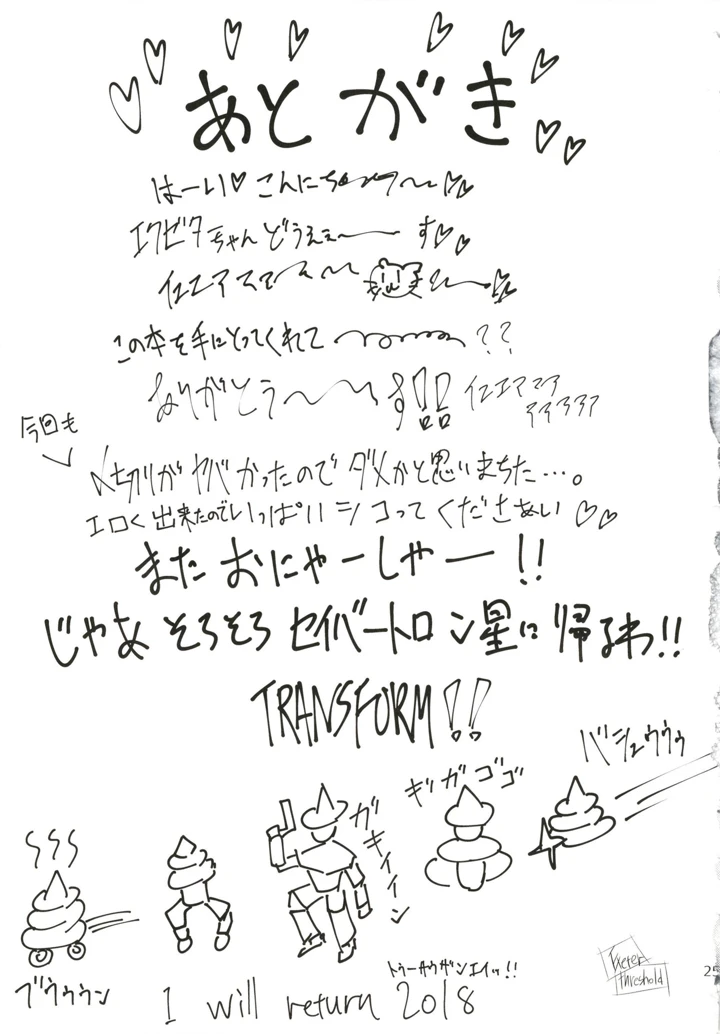 あとがき
はーい♡ こんにち
エクゼタちゃんどうえぇ〜 す♡♡
イエエア
この本を手にとってくれて ??
ありがとう〜〜す!!
イエエアアア
アアアアア
今回も
〆切りがヤバかったのでダメかと思いまちた…。
エロく出来たのでいっぱいシコってくださぁい♡♡
またおにゃーしゃー!!
じゃあそろそろセイバートロン星に帰るわ!!
TRANSFORM!!
バシュウゥゥ
ギガゴゴ
ガキイイン
ブウゥゥン
トゥーサウザンエイッ!!
I will return 2018
Exeter
threshold
25